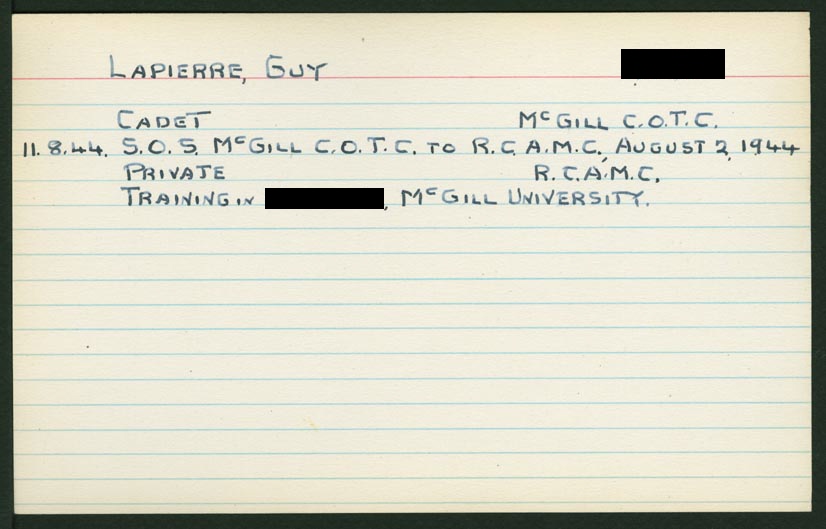 LAPIERRE, GUY
CADET McGILL C.O.T.C.
11.8.44. S.O.S. McGILL C.O.T.C. TO R.C.A.M.C., AUGUST 2, 1944
PRIVATE R.C.A.M.C.
TRAINING IN , McGILL UNIVERSITY.